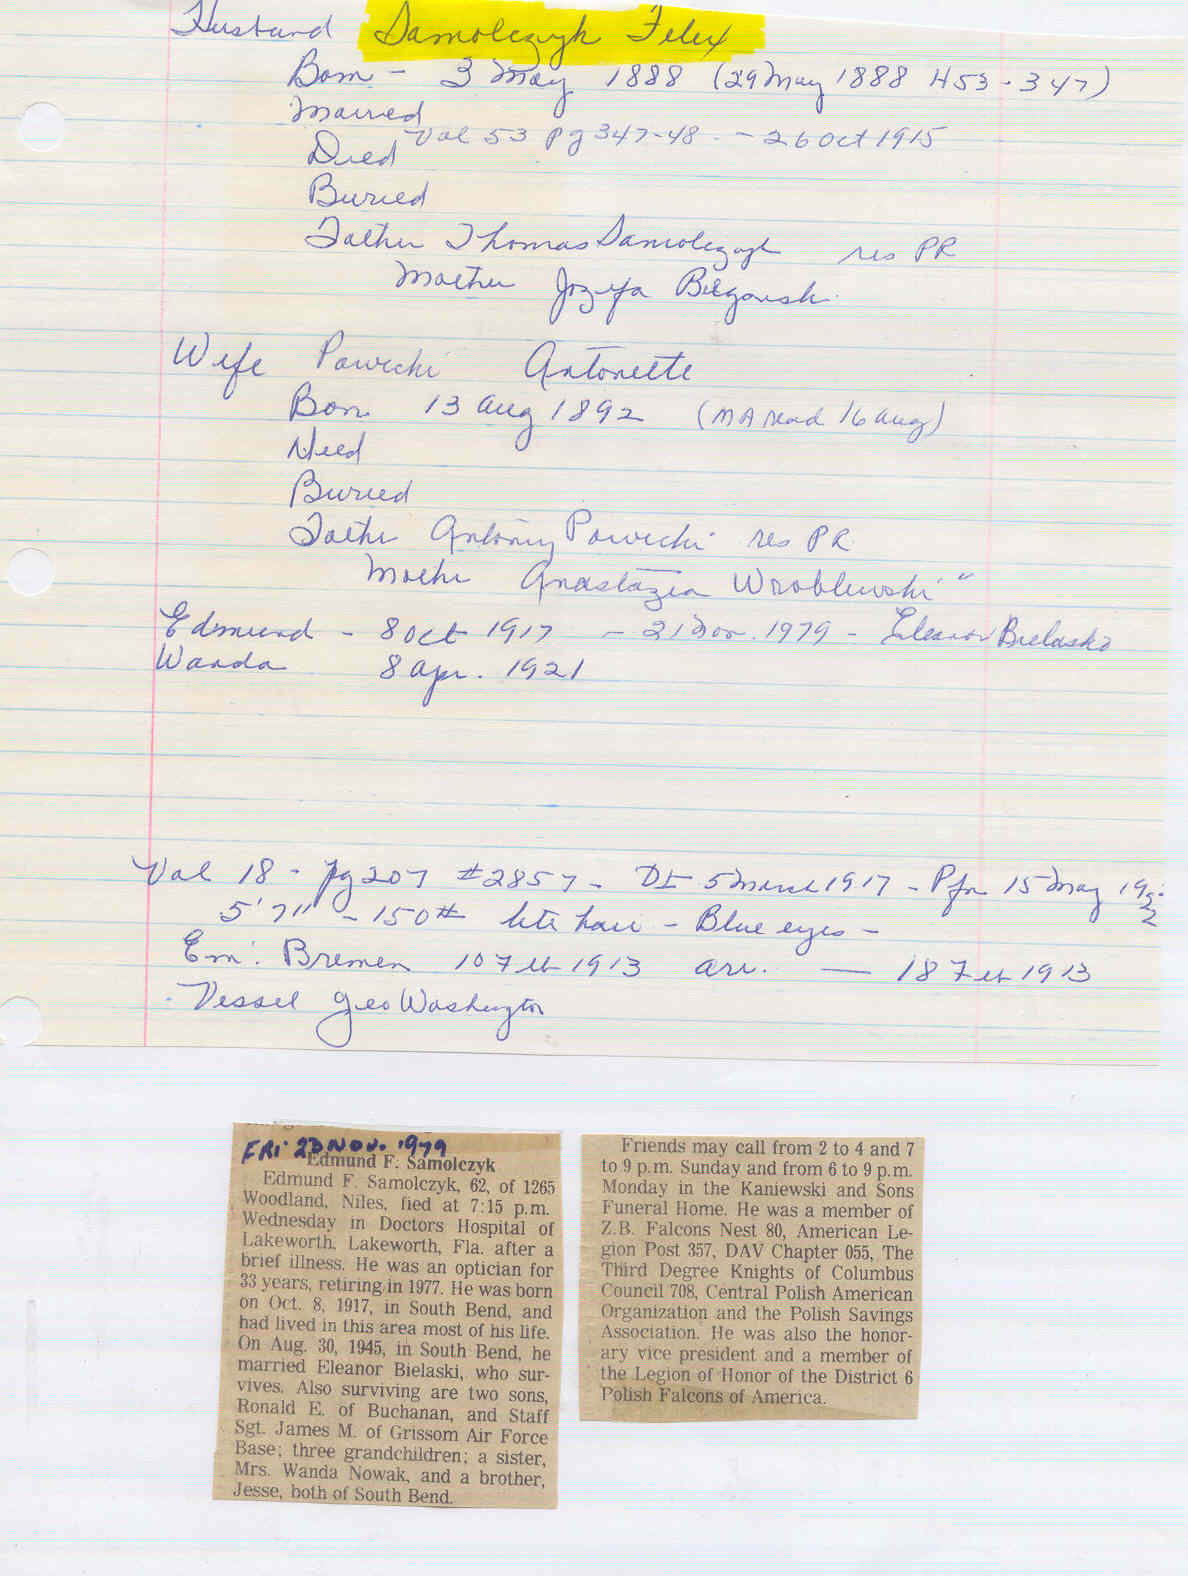 Husband Samolczyk Felix
Born - 3 May 1888 (29 May 1888 H53-347)
Married
Vol 53 pg 347-48 - 26 Oct 1915
Died
Buried
Father Thomas Samolczyk res PR
Mother Jozefa
Wife Pawicki Antonette
Born 13 Aug 1892 (MA read 16 Aug)
Died
Buried
Father Antoniy Pawicki res PR
Mother Anastazia Wroblewski "
Edmund - 8 Oct 1917 - 21 Nov. 1979 - Eleanor Bielaski
Wanda 8 Apr. 1921
Vol 18 - pg 207 #2857 - DI 5 March 1917 - Pfn 15 May 1922
5'7" - 150# lite hair - Blue eyes -
Em: Bremen 10 Feb 1913 arr. — 18 Feb 1913
- Vessel Geo Washington
FRI 23 NOV. 1979
Edmund F. Samolczyk
Edmund F. Samolczyk, 62, of 1265
Woodland, Niles, fied at 7:15 p.m.
Wednesday in Doctors Hospital of
Lakeworth, Lakeworth, Fla. after a
brief illness. He was an optician for
33 years, retiring in 1977. He was born
on Oct. 8, 1917, in South Bend, and
had lived in this area most of his life.
On Aug. 30, 1945, in South Bend, he
married Eleanor Bielaski, who sur-
vives. Also surviving are two sons,
Ronald E. of Buchanan, and Staff
Sgt. James M. of Grissom Air Force
Base; three grandchildren; a sister,
Mrs. Wanda Nowak, and a brother,
Jesse, both of South Bend.
Friends may call from 2 to 4 and 7
to 9 p.m. Sunday and from 6 to 9 p.m.
Monday in the Kaniewski and Sons
Funeral Home. He was a member of
Z.B. Falcons Nest 80, American Le-
gion Post 357, DAV Chapter 055, The
Third Degree Knights of Columbus
Council 708, Central Polish American
Organization and the Polish Savings
Association. He was also the honor-
ary vice president and a member of
the Legion of Honor of the District 6
Polish Falcons of America.